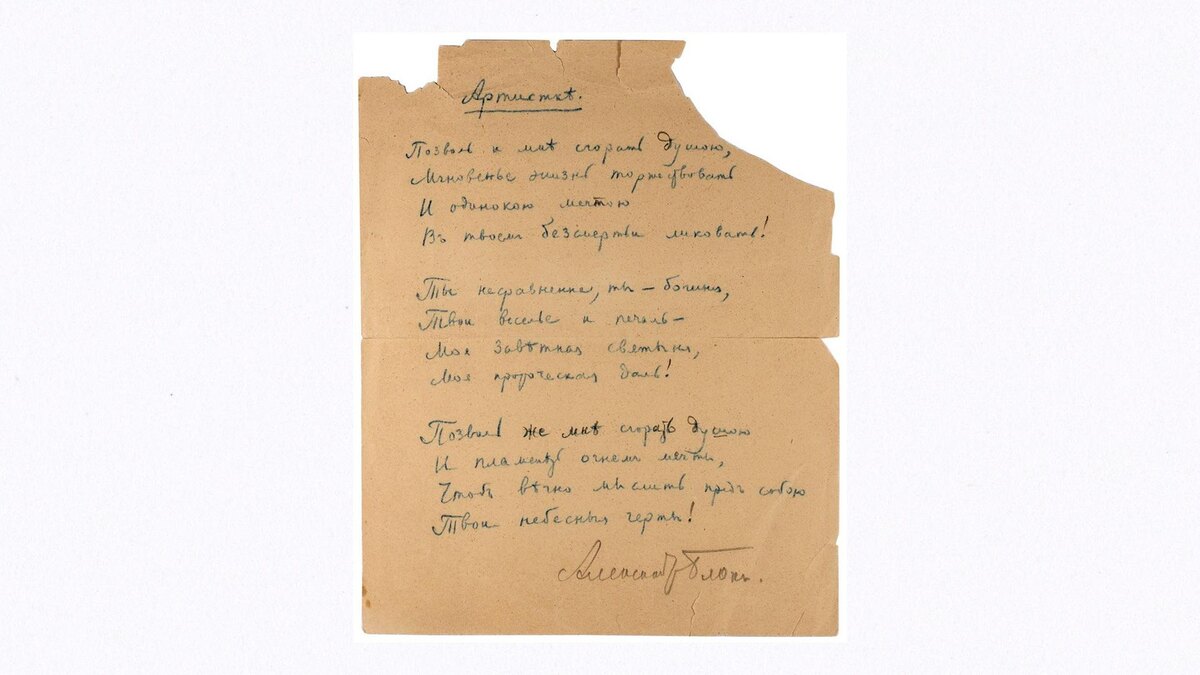 Артисткѣ.
Позволь и мнѣ сгорать душою,
Мгновенье жизнь торжествовать
И одинокою мечтою
Въ твоемъ безсмертьи ликовать!
Ты несравненна, ты — богиня,
Твои веселье и печаль —
Моя завѣтная святыня,
Моя пророческая даль!
Позволь же мнѣ сгорать душою
И пламенѣть огнемъ мечты,
Чтобъ вѣчно мыслить предъ собою
Твои небесныя черты!
Александръ Блокъ.